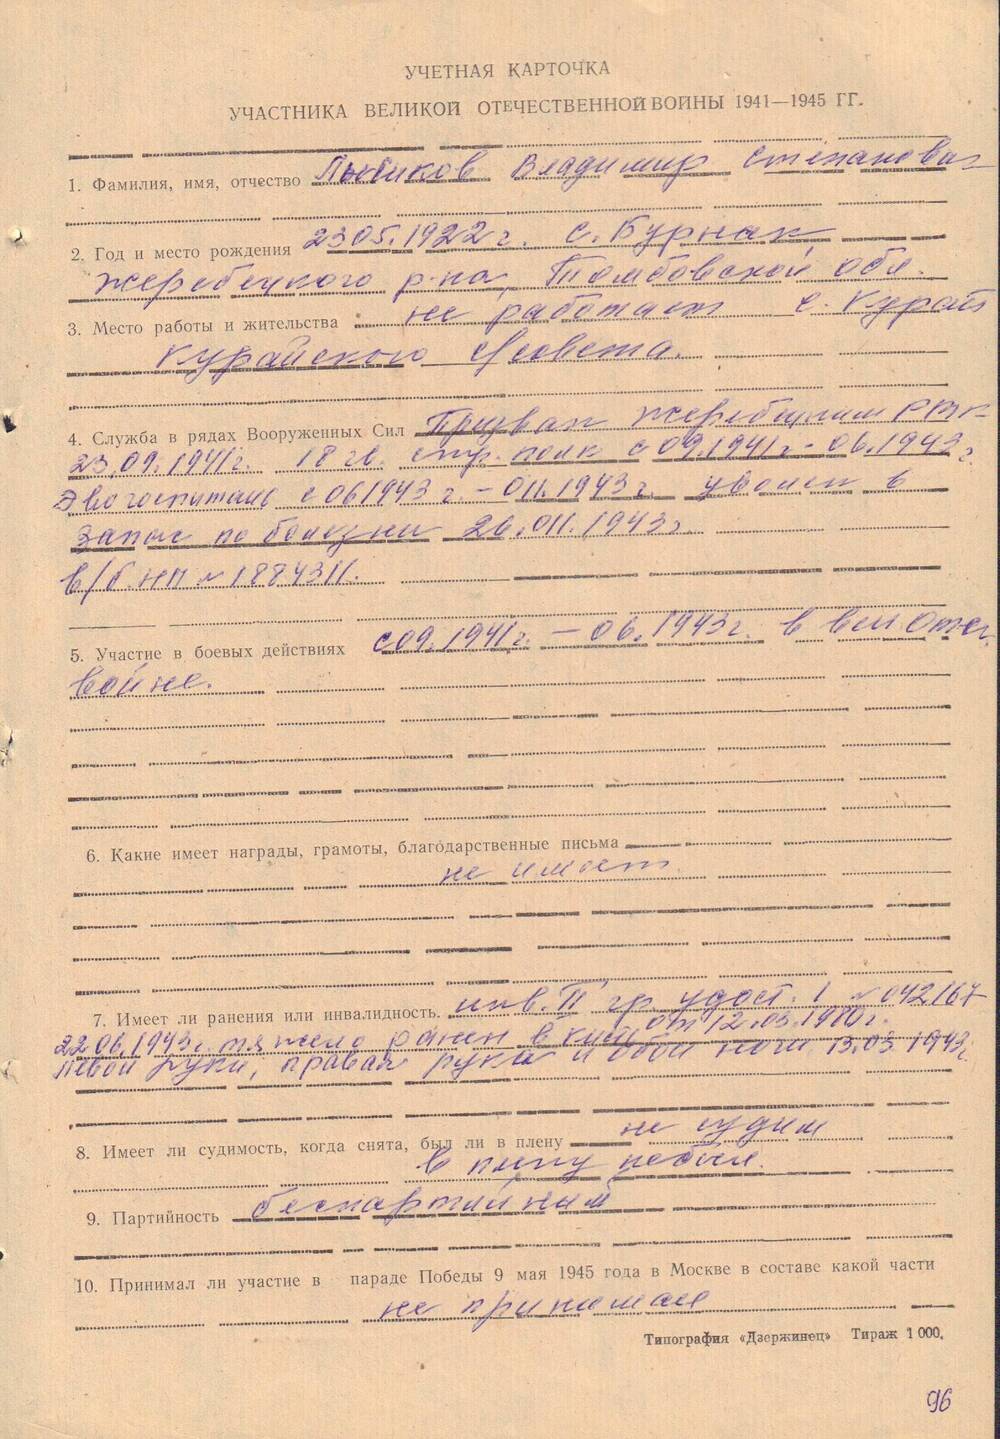 УЧЕТНАЯ КАРТОЧКА
УЧАСТНИКА ВЕЛИКОЙ ОТЕЧЕСТВЕННОЙ ВОЙНЫ 1941—1945 ГГ.
1. Фамилия, имя, отчество Владимир Степанович
2. Год и место рождения 23 05. 1922 г. с. Бурнак
Жеребецкого р-на, Томбовской обл.
3. Место работы и жительства не работает с. Курай
Курайского с/совета.
4. Служба в рядах Вооруженных Сил Призван Жеребецким РВК
23.09.1941г. 18 гв. стр. полк с 09.1941г. - 06.1943г.
Эвогоспиталь с 06 1943 г. - 011.1943г. уволен в
запас по болезни 26.011.1943г.
в/б. НП № 1884311.
5. Участие в боевых действиях с 09.1941г. - 06.1943г. в вел Отеч.
войне.
6. Какие имеет награды, грамоты, благодарственные письма
не имеет.
7. Имеет ли ранения или инвалидность. инв. II гр. удост. 1 № 042167
от 12.03.1980г.
22 06.1943г. тяжело ранен в
левой руки, правая рука и обои ноги 13.03.1943г.
8. Имеет ли судимость, когда снята, был ли в плену не судим
в плену небыл.
9. Партийность беспартийный
10. Принимал ли участие в параде Победы 9 мая 1945 года в Москве в составе какой части
не принимал
Типография «Дзержинец» Тираж 1 000.
96